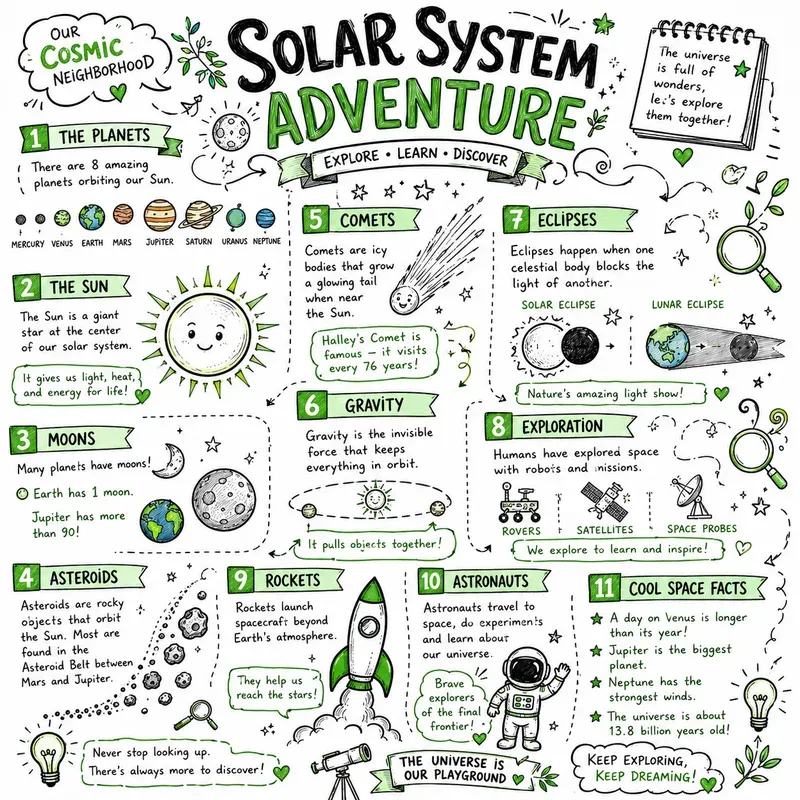 OUR
COSMIC
NEIGHBORHOOD
SOLAR SYSTEM
ADVENTURE
EXPLORE • LEARN • DISCOVER
The universe
is full of
wonders,
le:'s explore
them together!
1 THE PLANETS
There are 8 amazing
planets orbiting our Sun.
MERCURY VENUS EARTH MARS JUPITER SATURN URANUS NEPTUNE
2 THE SUN
The Sun is a giant
star at the center
of our solar system.
It gives us light, heat,
and energy for life!
3 MOONS
Many planets have moons!
Earth has 1 moon.
Jupiter has more
than 90!
4 ASTEROIDS
Asteroids are rocky
objects that orbit
the Sun. Most are
found in the
Asteroid Belt between
Mars and Jupiter.
5 COMETS
Comets are icy
bodies that grow
a glowing tail
when near
the Sun.
Halley's Comet is
famous – it visits
every 76 years!
6 GRAVITY
Gravity is the invisible
force that keeps
everything in orbit.
It pulls objects together!
7 ECLIPSES
Eclipses happen when one
celestial body blocks the
light of another.
SOLAR ECLIPSE
LUNAR ECLIPSE
Nature's amazing light show!
8 EXPLORATION
Humans have explored space
with robots and missions.
ROVERS
SATELLITES
SPACE PROBES
We explore to learn and inspire!
9 ROCKETS
Rockets launch
spacecraft beyond
Earth's atmosphere.
They help us
reach the stars!
10 ASTRONAUTS
Astronauts travel to
space, do experiments
and learn about
our universe.
Brave
explorers
of the final
frontier!
11 COOL SPACE FACTS
A day on Venus is longer
than its year!
Jupiter is the biggest
planet.
Neptune has the
strongest winds.
The universe is about
13.8 billion years old!
Never stop looking up.
There's always more to discover!
THE UNIVERSE IS
OUR PLAYGROUND
KEEP EXPLORING,
KEEP DREAMING!